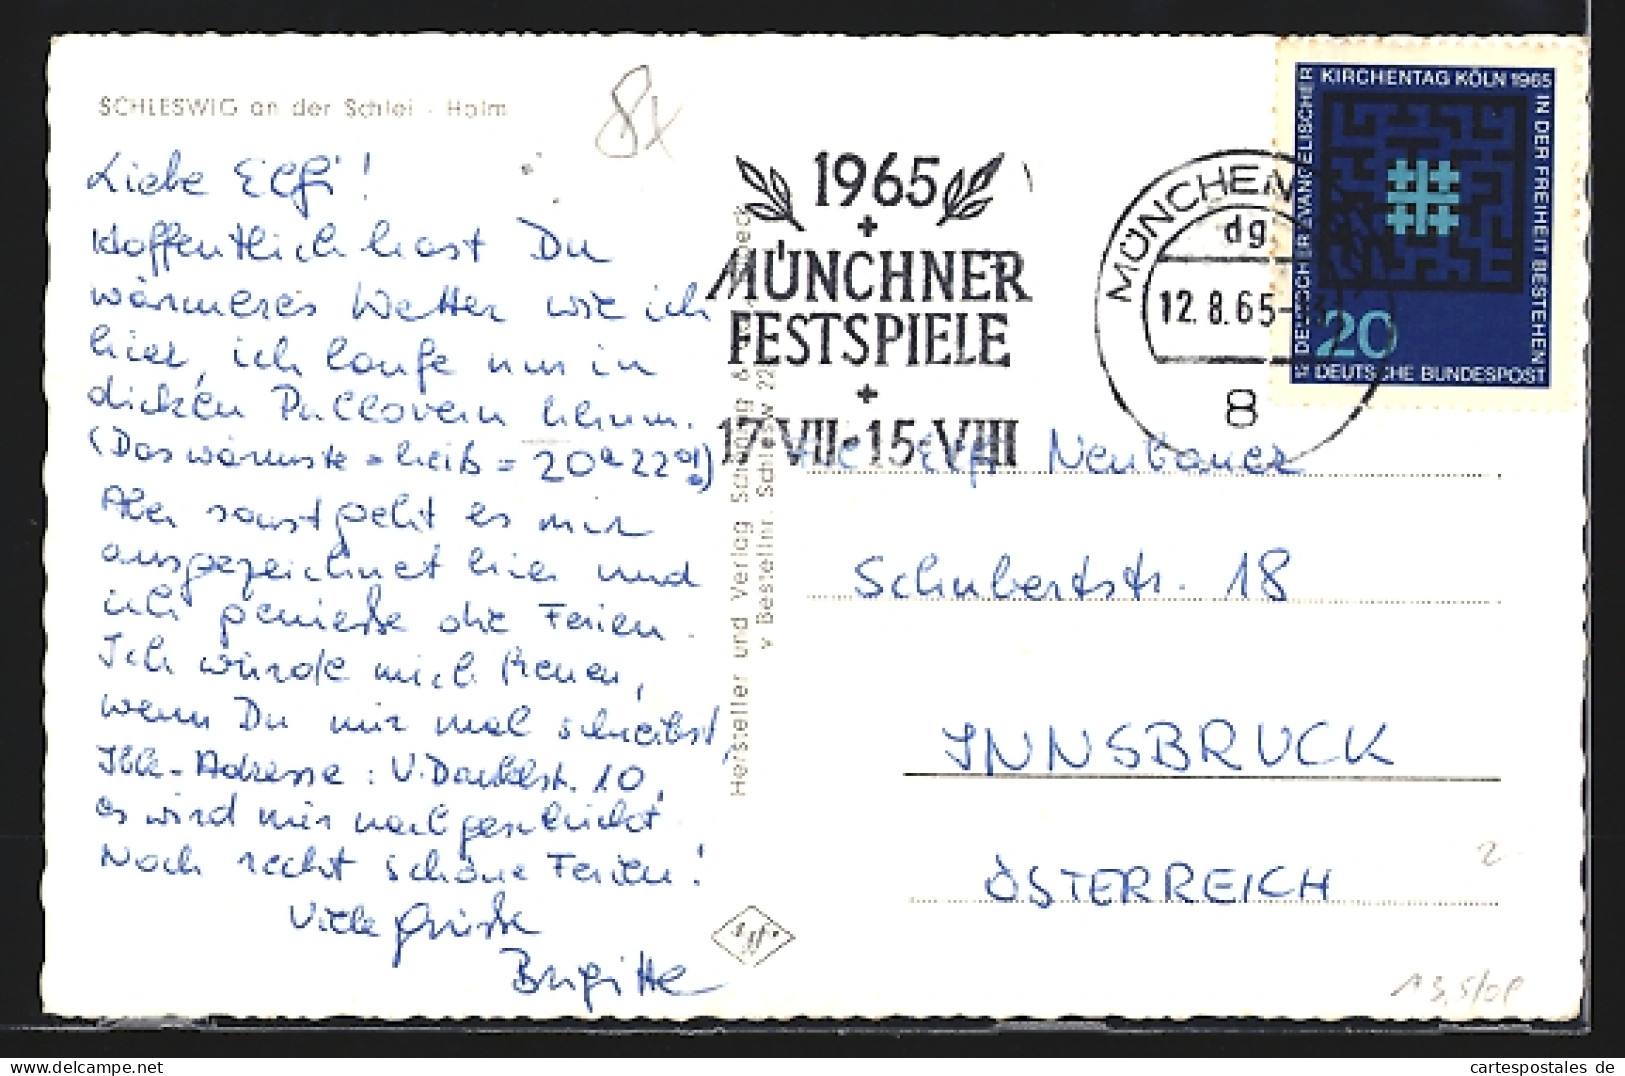 SCHLESWIG an der Schlei - Holm
Liebe Elfi!
Hoffentlich hast Du
wärmeres Wetter wie ich
hier, ich laufe nur in
dicken Pullovern herum.
(Das wärmste = heiß = 20° 22°!)
Aber sonst geht es mir
ausgezeichnet hier und
ich genieße die Ferien.
Ich würde mich freuen,
wenn Du mir mal schreibst,
Adresse: 10,
es wird mir nachgeschickt
Noch recht schöne Ferien!
Viele Grüße
Brigitte
Hersteller und Verlag Schöning &
v Bestellnr. Schlesw 22
1965
MÜNCHNER
FESTSPIELE
17·VII-15·VIII
MÜNCHEN
dg
12.8.65-
8
DEUTSCHER EVANGELISCHER
KIRCHENTAG KÖLN 1965
IN DER FREIHEIT BESTEHEN
20
DEUTSCHE BUNDESPOST
Elfi Neubauer
Schubertstr. 18
INNSBRUCK
ÖSTERREICH
cartespostales de